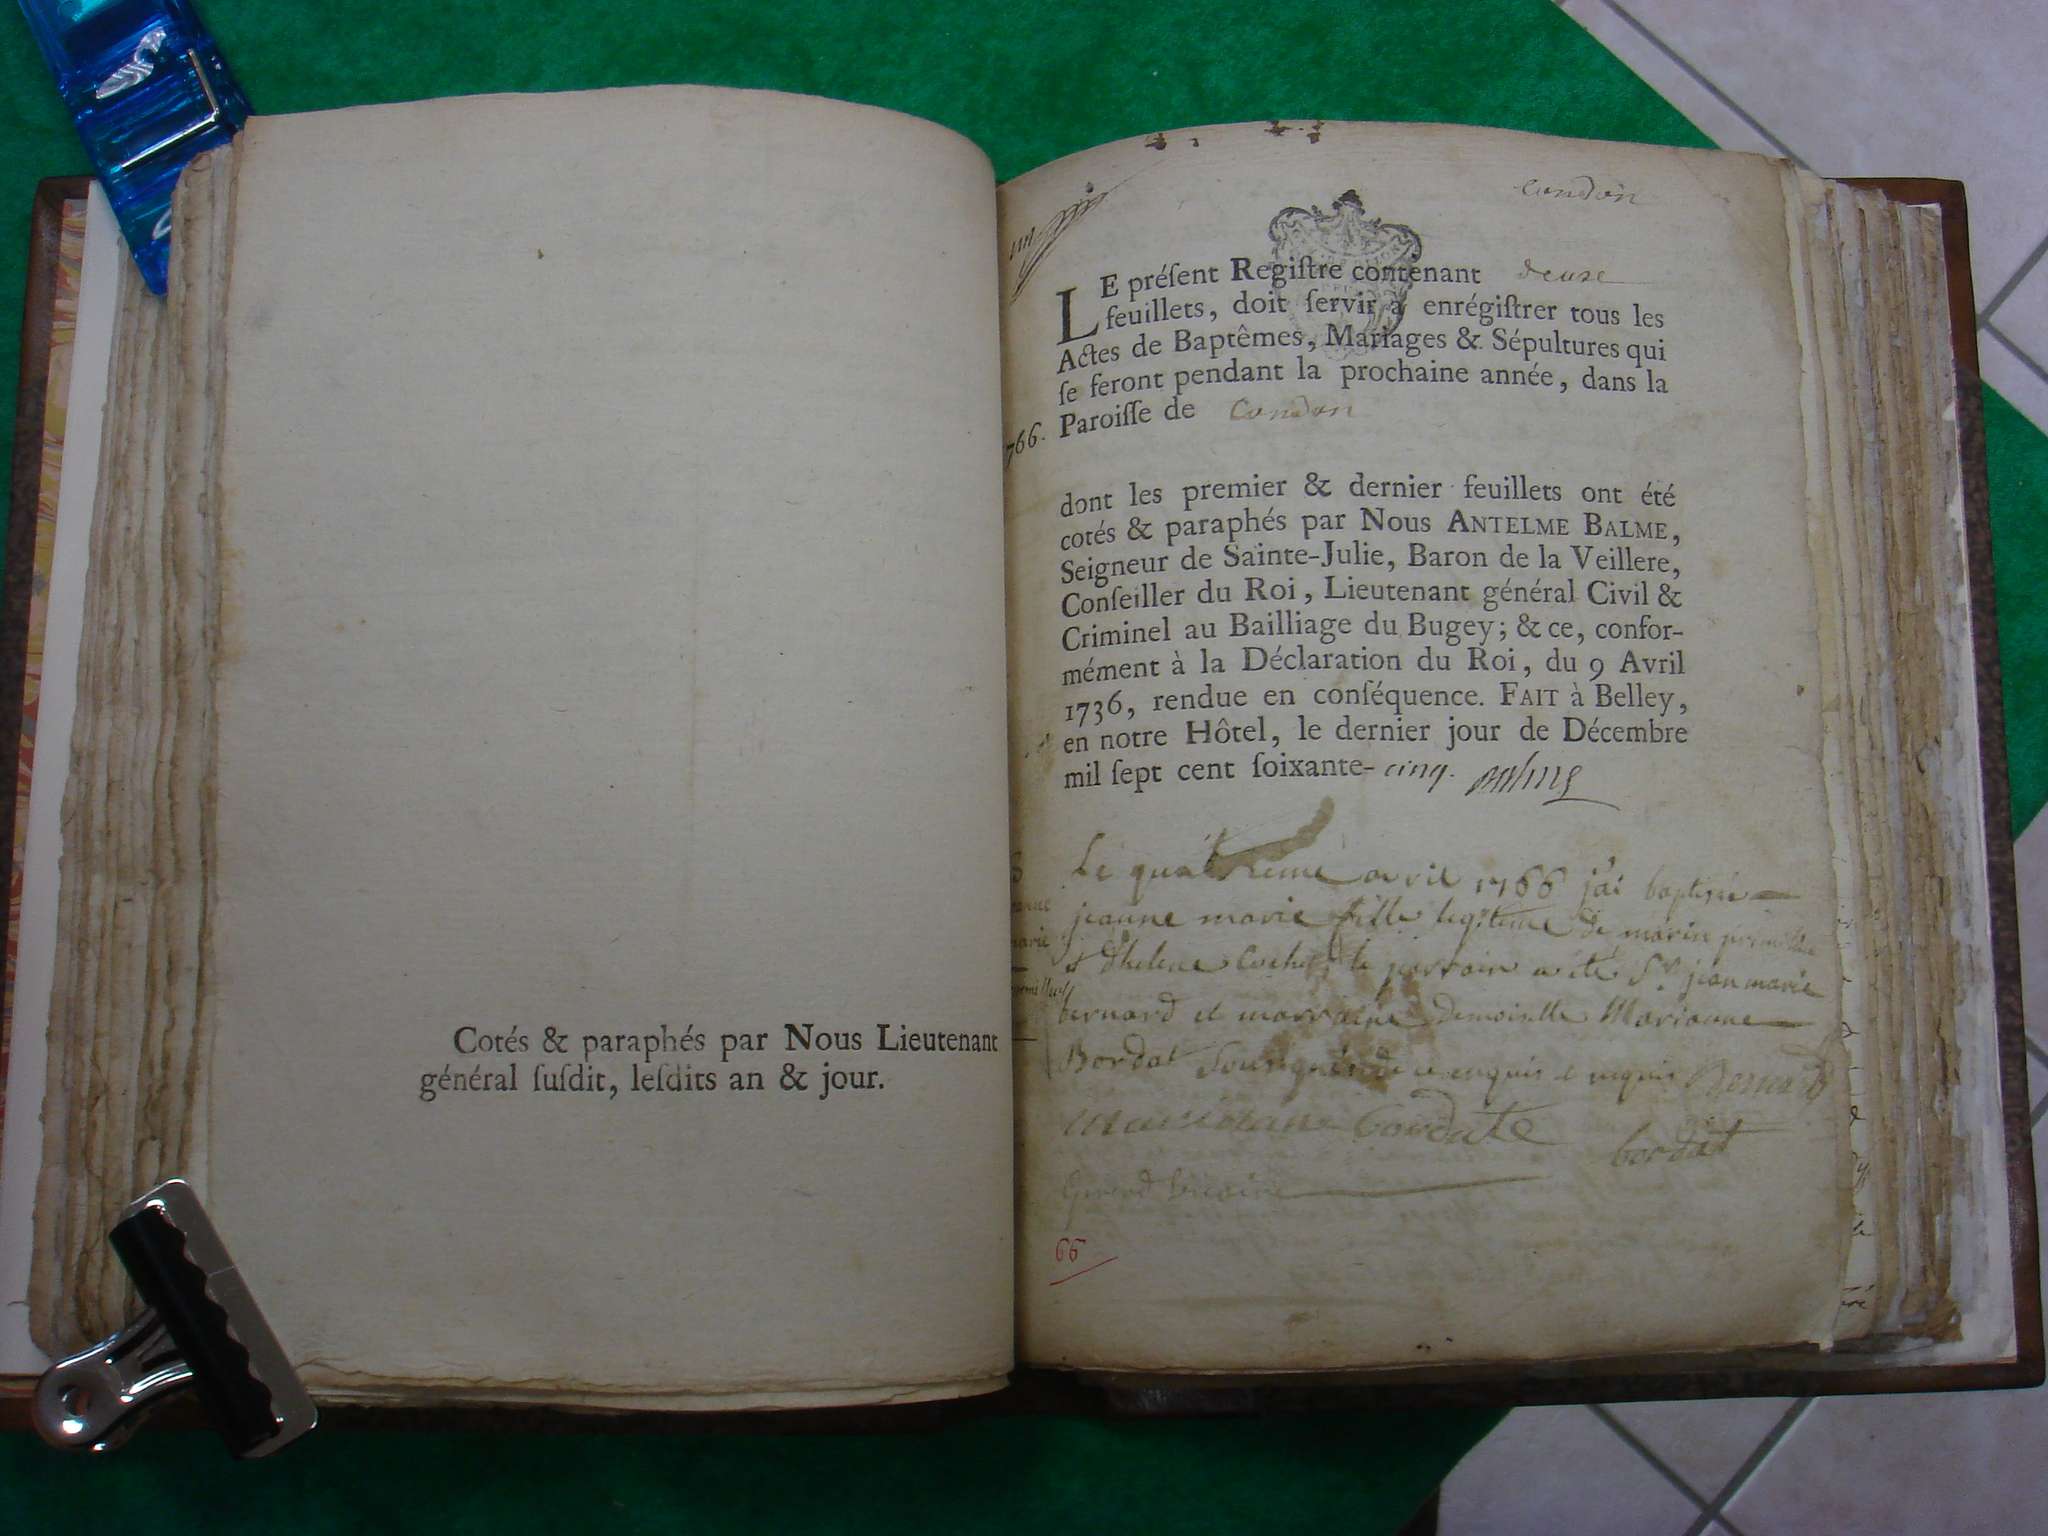 Cotés & paraphés par Nous Lieutenant
général ſuſdit, leſdits an & jour.
Condon
LE préſent Regiſtre contenant deuxe
feuillets, doit ſervir à enrégiſtrer tous les
Actes de Baptêmes, Mariages & Sépultures qui
ſe feront pendant la prochaine année, dans la
Paroiſſe de Condon
1766.
dont les premier & dernier feuillets ont été
cotés & paraphés par Nous ANTELME BALME,
Seigneur de Sainte-Julie, Baron de la Veillere,
Conſeiller du Roi, Lieutenant général Civil &
Criminel au Bailliage du Bugey; & ce, confor-
mément à la Déclaration du Roi, du 9 Avril
1736, rendue en conſéquence. FAIT à Belley,
en notre Hôtel, le dernier jour de Décembre
mil ſept cent ſoixante- cinq. Balme
Le quatrieme avril 1766 j'ai baptisée
jeanne marie fille legitime de marin
d'helene le parrain a été Sr. jean marie
bernard et marraine Demoiselle Marianne
Bordat Sousignés de ce enquis et requis Bernard
bordate
bordat
Girerd vicaire
66